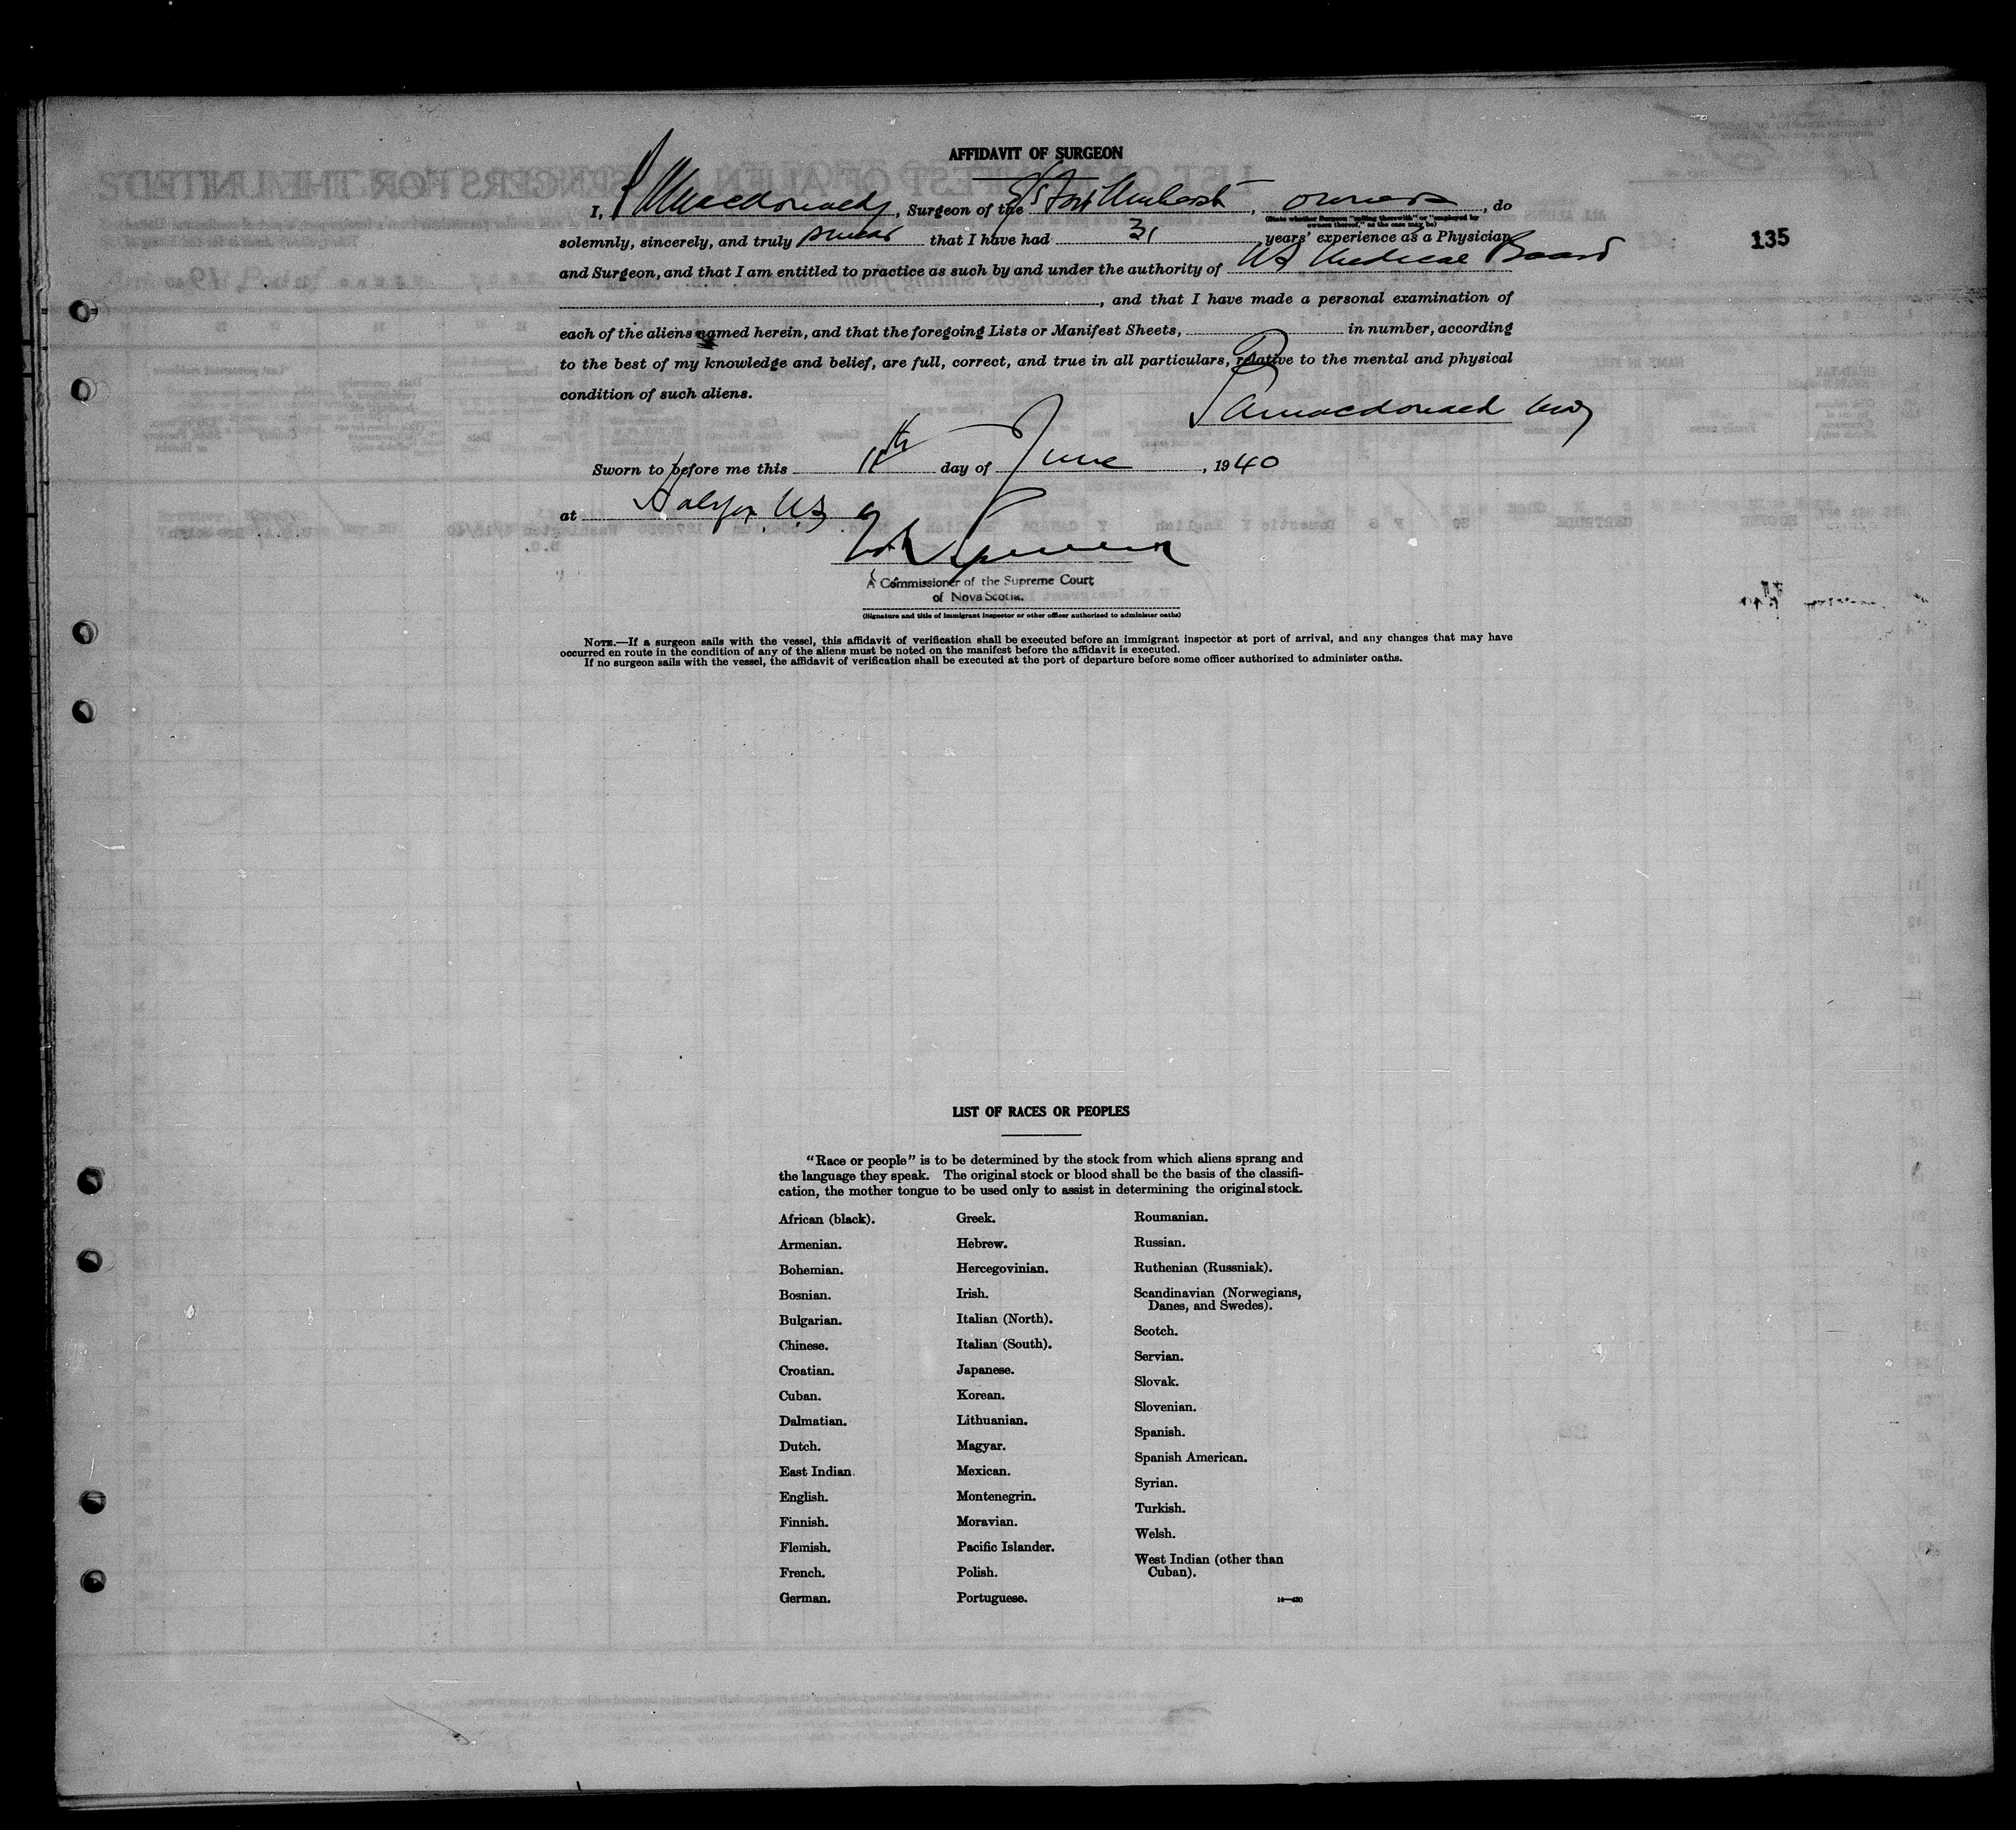 AFFIDAVIT OF SURGEON
I, Macdonald, Surgeon of the S/S Fort Amherst, owners, do
(State whether Surgeon "sailing therewith" or "employed by
owners thereof," as the case may be)
solemnly, sincerely, and truly swear that I have had 31 years' experience as a Physician
135
and Surgeon, and that I am entitled to practice as such by and under the authority of NS Medical Board
, and that I have made a personal examination of
each of the aliens named herein, and that the foregoing Lists or Manifest Sheets, in number, according
to the best of my knowledge and belief, are full, correct, and true in all particulars, relative to the mental and physical
condition of such aliens.
Macdonald
Sworn to before me this 11th day of June, 1940
at Halifax N.S
A Commissioner of the Supreme Court
of Nova Scotia.
(Signature and title of immigrant inspector or other officer authorized to administer oaths)
NOTE.—If a surgeon sails with the vessel, this affidavit of verification shall be executed before an immigrant inspector at port of arrival, and any changes that may have
occurred en route in the condition of any of the aliens must be noted on the manifest before the affidavit is executed.
If no surgeon sails with the vessel, the affidavit of verification shall be executed at the port of departure before some officer authorized to administer oaths.
LIST OF RACES OR PEOPLES
"Race or people" is to be determined by the stock from which aliens sprang and
the language they speak. The original stock or blood shall be the basis of the classifi-
cation, the mother tongue to be used only to assist in determining the original stock.
African (black).
Armenian.
Bohemian.
Bosnian.
Bulgarian.
Chinese.
Croatian.
Cuban.
Dalmatian.
Dutch.
East Indian.
English.
Finnish.
Flemish.
French.
German.
Greek.
Hebrew.
Hercegovinian.
Irish.
Italian (North).
Italian (South).
Japanese.
Korean.
Lithuanian.
Magyar.
Mexican.
Montenegrin.
Moravian.
Pacific Islander.
Polish.
Portuguese.
Roumanian.
Russian.
Ruthenian (Russniak).
Scandinavian (Norwegians,
Danes, and Swedes).
Scotch.
Servian.
Slovak.
Slovenian.
Spanish.
Spanish American.
Syrian.
Turkish.
Welsh.
West Indian (other than
Cuban).
14—430